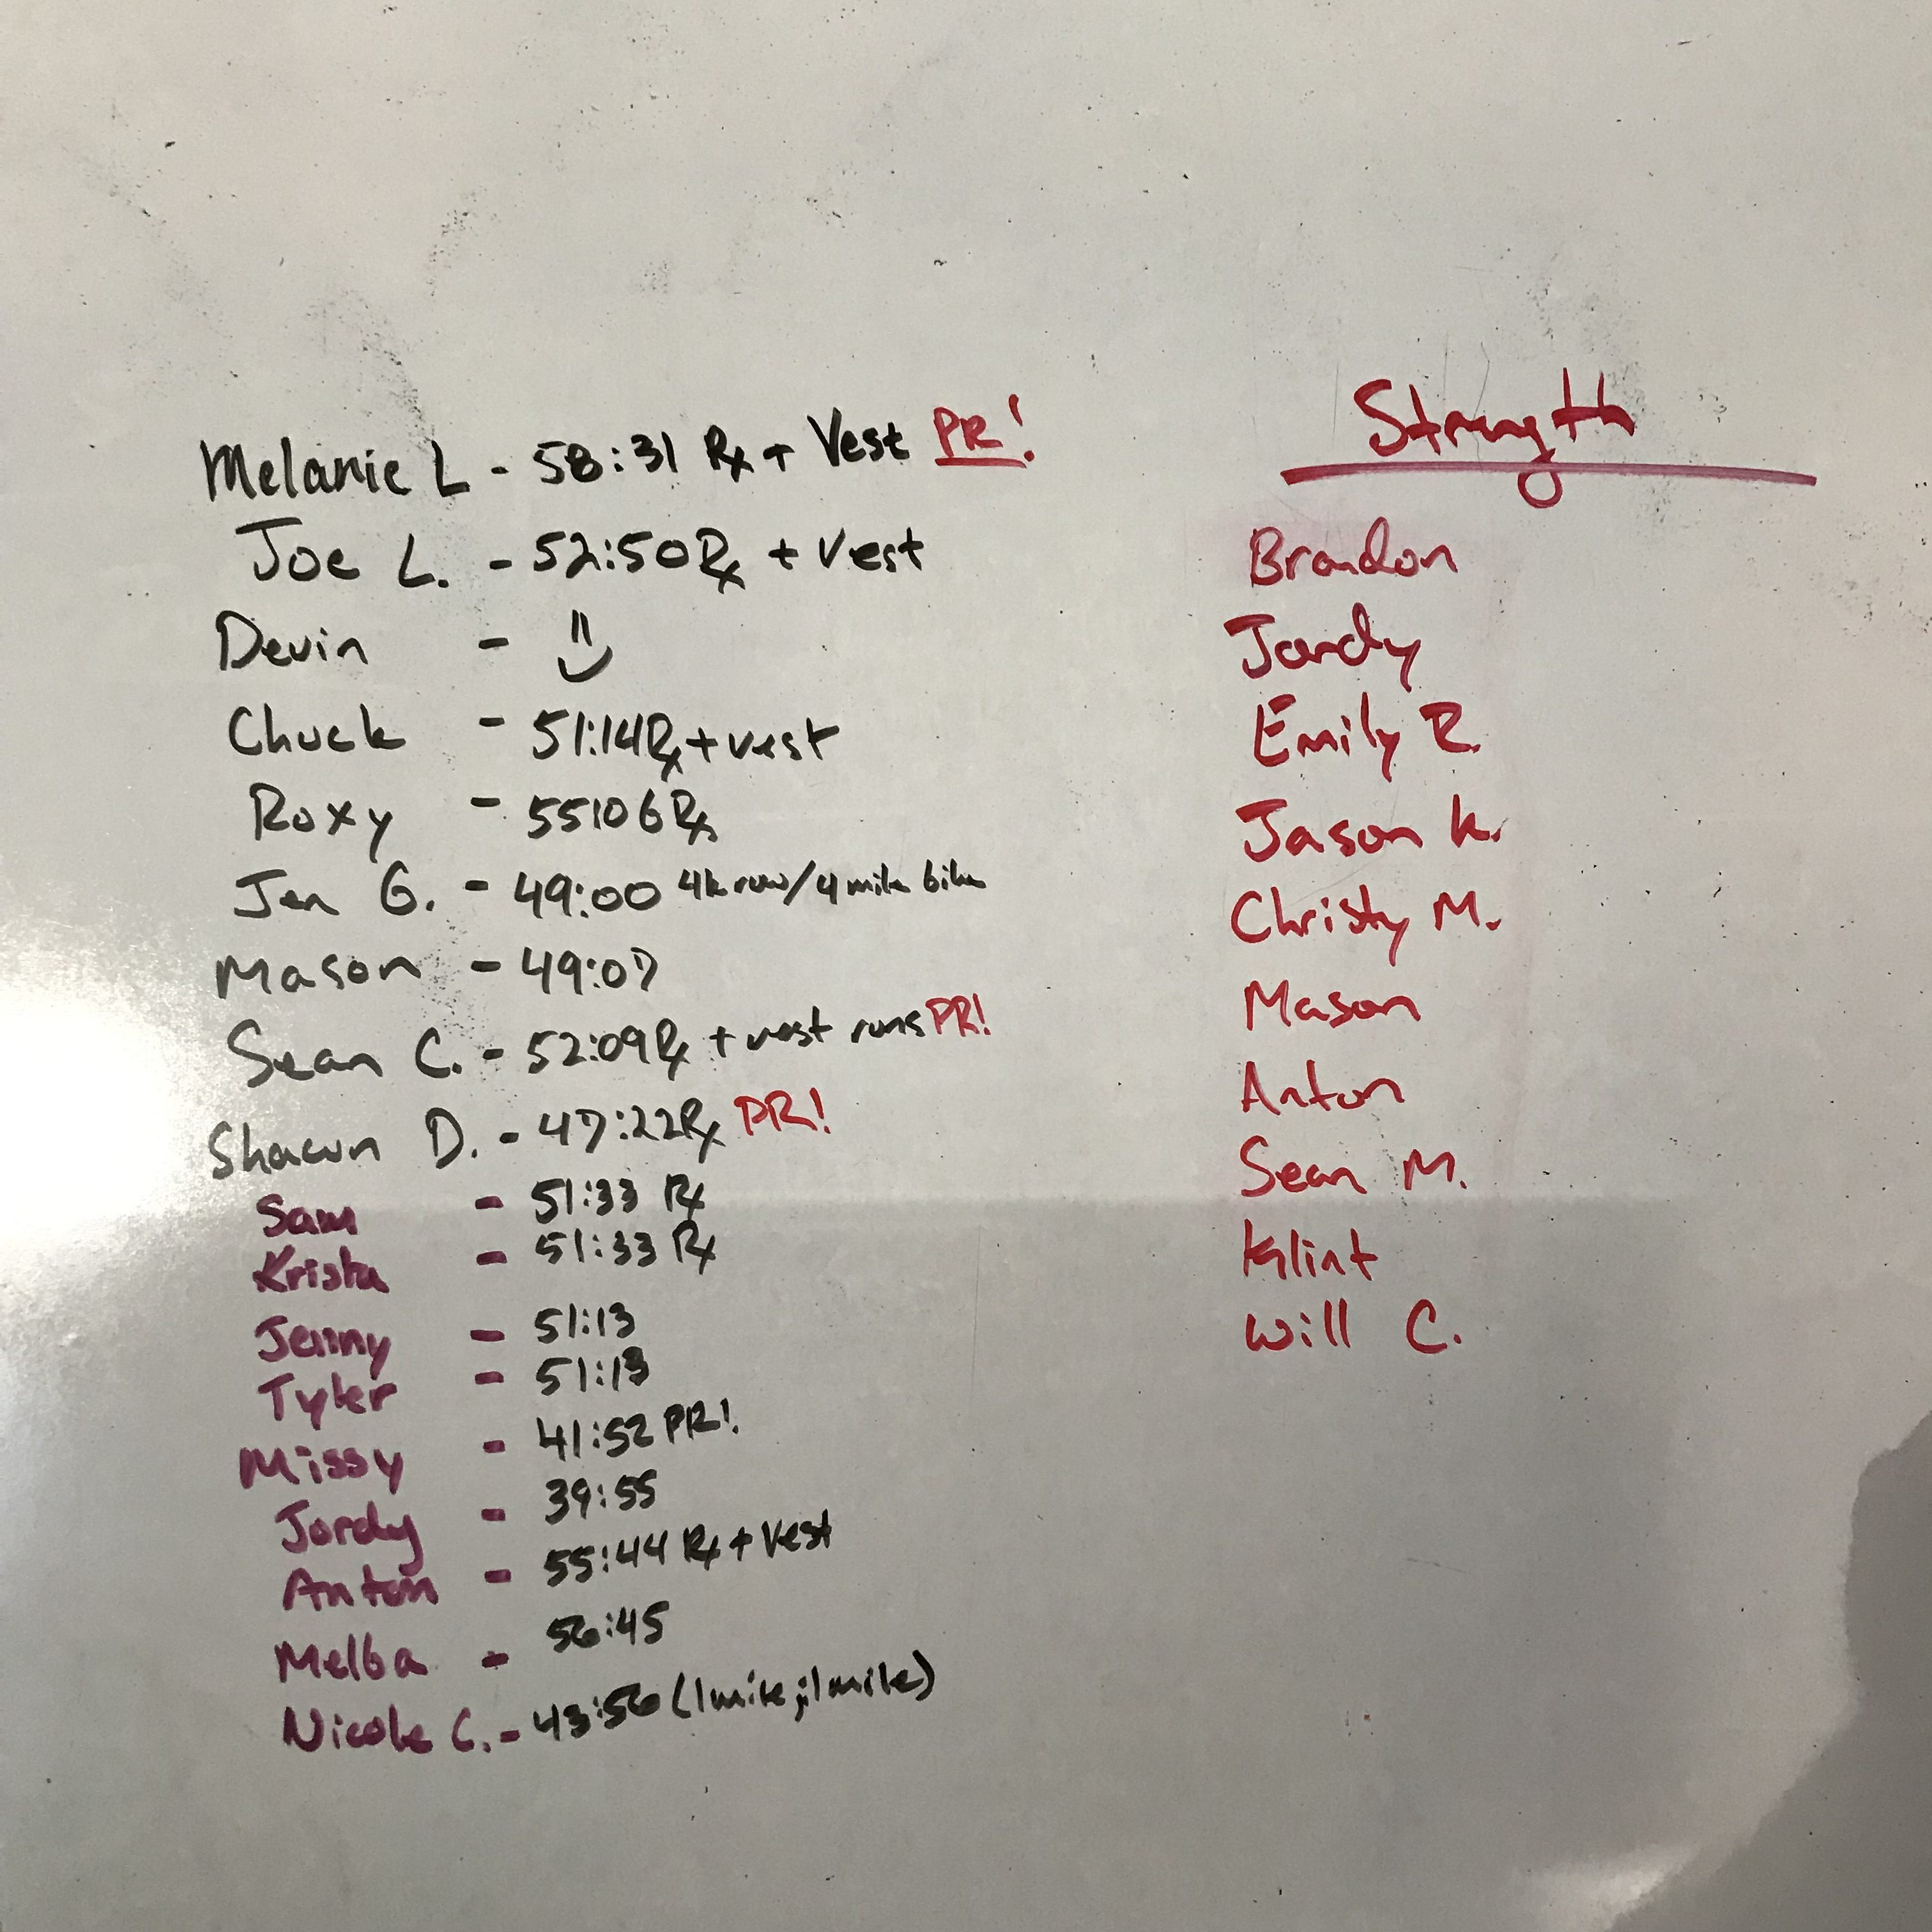 Melanie L - 58:31 Rx + Vest PR!
Joe L. - 52:50 Rx + Vest
Devin -
Chuck - 51:14 Rx + vest
Roxy - 55:06 Rx
Jen G. - 49:00 4k row/4 mile bike
Mason - 49:07
Sean C. - 52:09 Rx + vest runs PR!
Shawn D. - 47:22 Rx PR!
Sam - 51:33 Rx
Krista - 51:33 Rx
Jenny - 51:13
Tyler - 51:13
Missy - 41:52 PR!
Jordy - 39:55
Anton - 55:44 Rx + Vest
Melba - 56:45
Nicole C. - 43:56 (1 mile, 1 mile)
Strength
Brandon
Jordy
Emily R.
Jason K.
Christy M.
Mason
Anton
Sean M.
Klint
Will C.